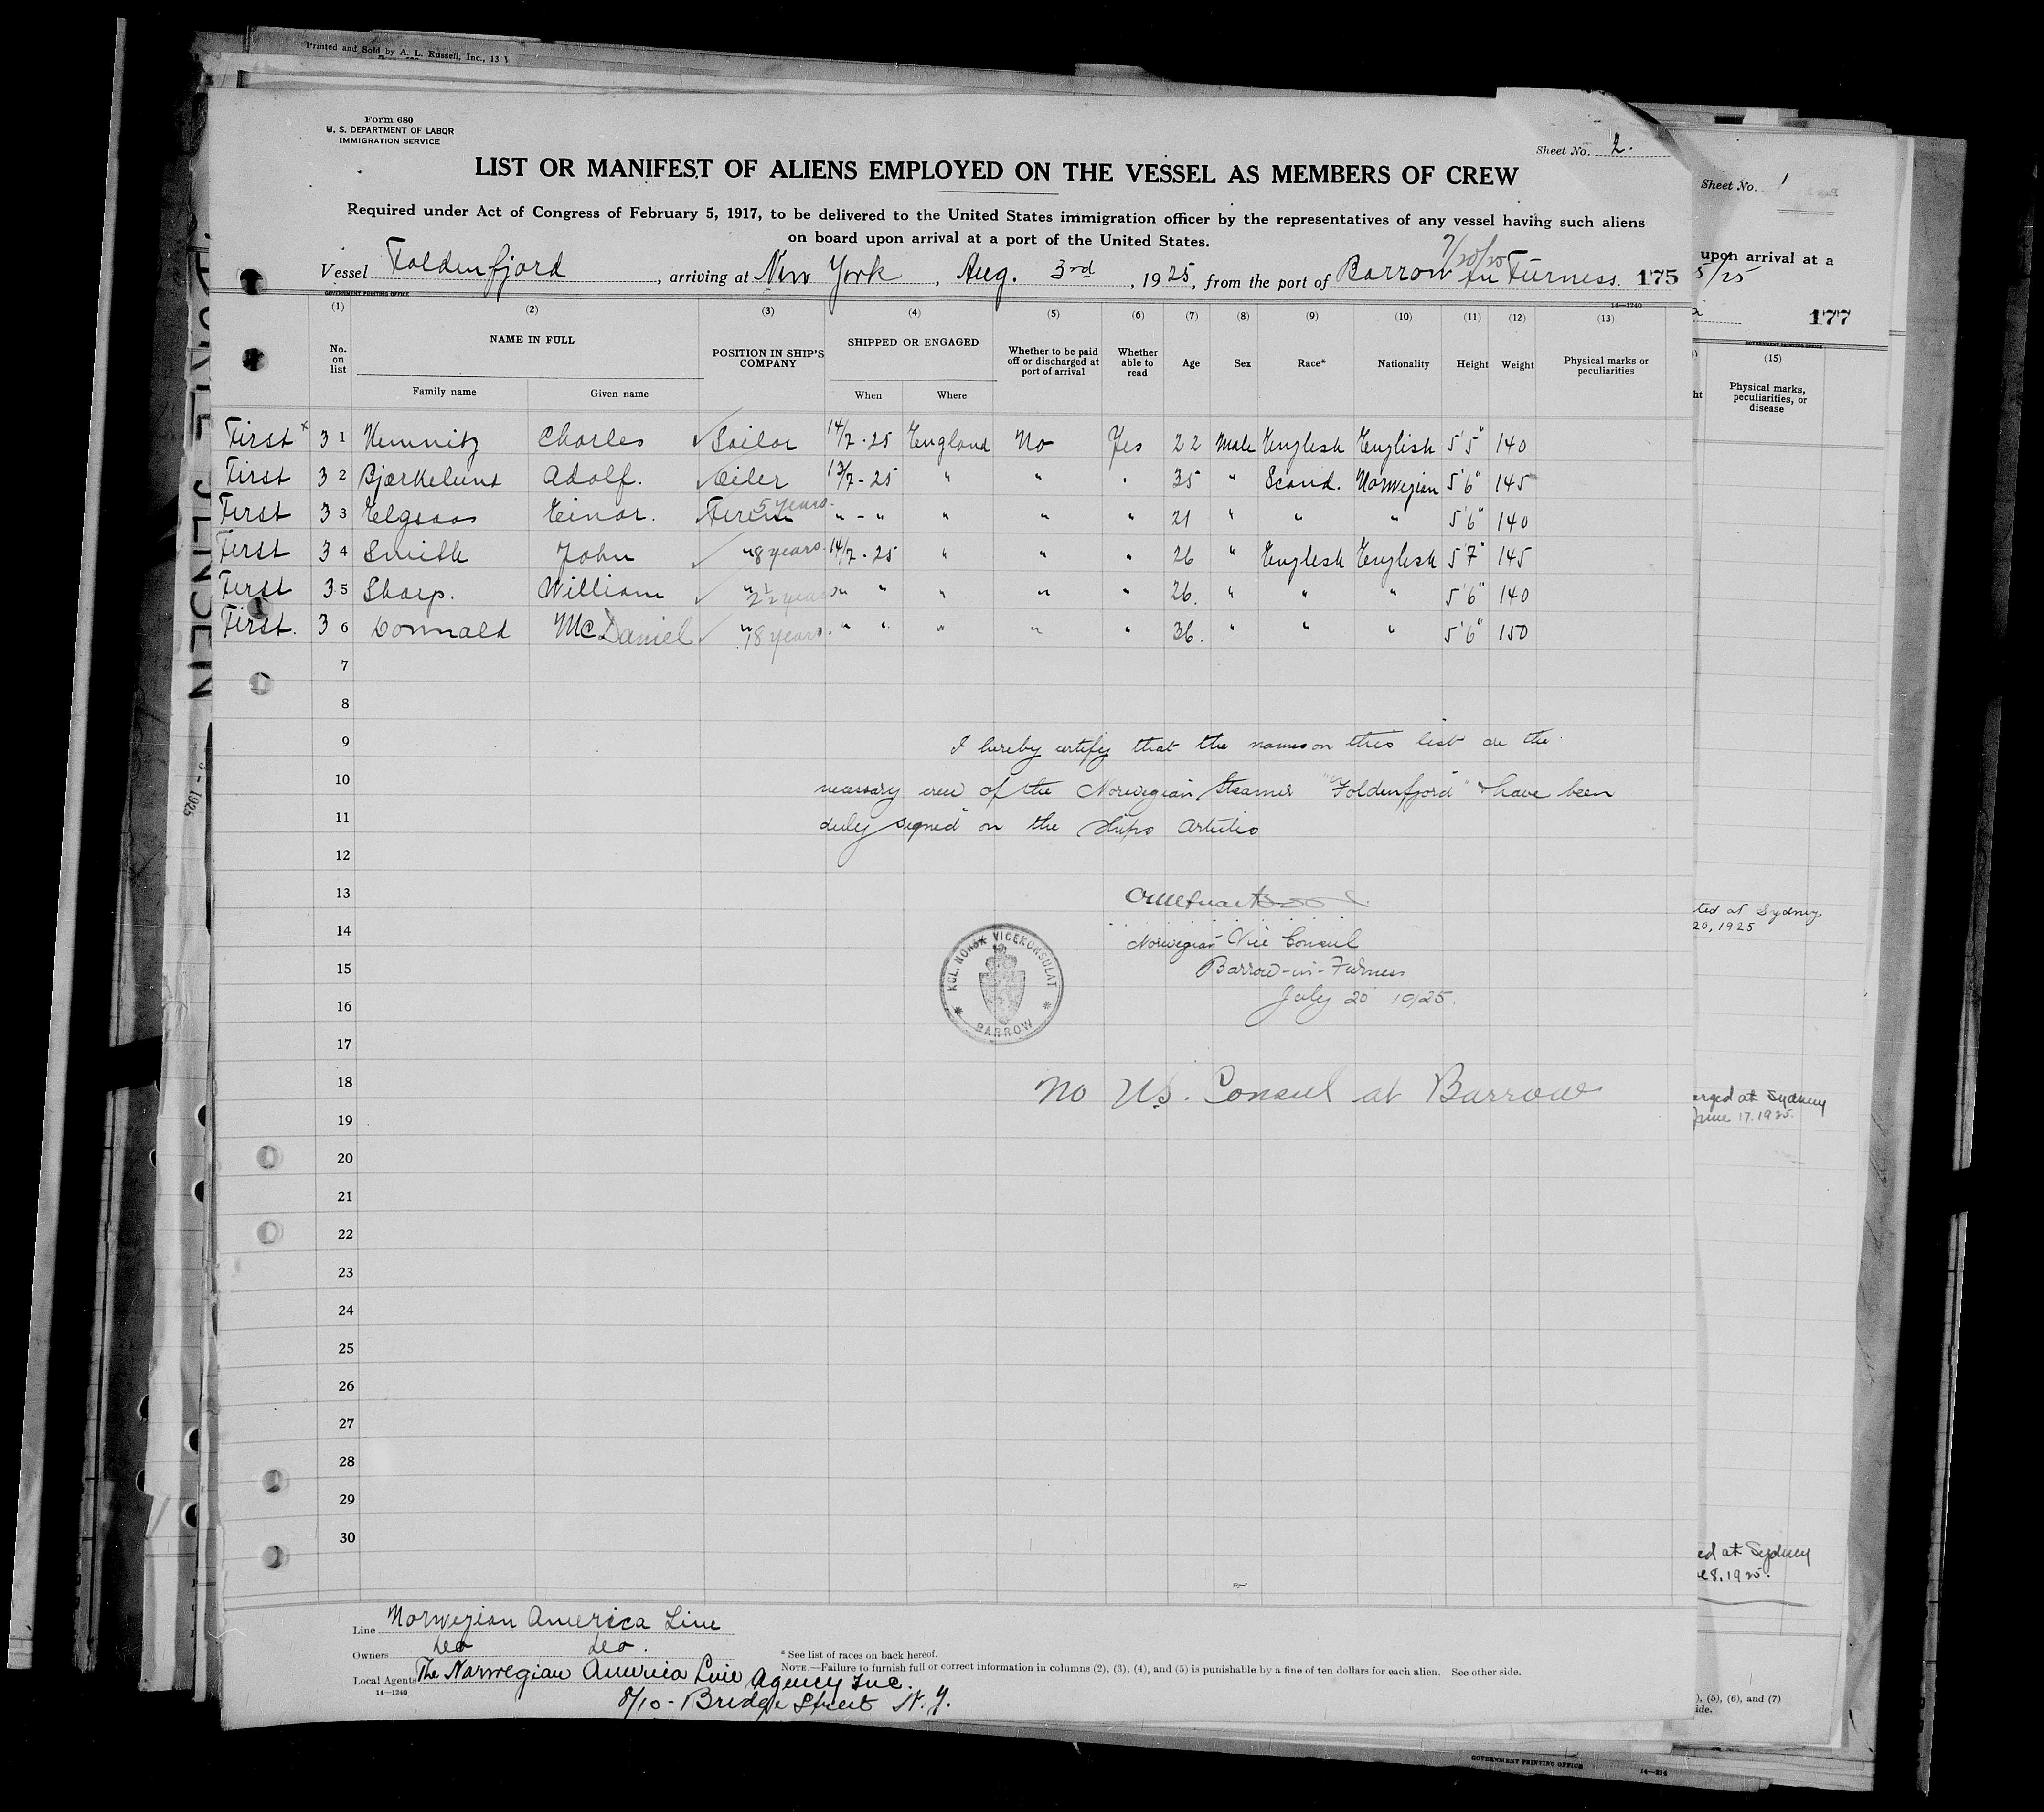 Printed and Sold by A. L. Russell, Inc., 13
Form 680
U. S. DEPARTMENT OF LABOR
IMMIGRATION SERVICE
Sheet No. 2.
LIST OR MANIFEST OF ALIENS EMPLOYED ON THE VESSEL AS MEMBERS OF CREW
Required under Act of Congress of February 5, 1917, to be delivered to the United States immigration officer by the representatives of any vessel having such aliens
on board upon arrival at a port of the United States.
7/20/25
Vessel Foldenfjord, arriving at New York, Aug. 3rd, 1925, from the port of Barrow in Furness. 175
GOVERNMENT PRINTING OFFICE 14—1240
(1) (2) (3) (4) (5) (6) (7) (8) (9) (10) (11) (12) (13)
No. on list NAME IN FULL Family name Given name POSITION IN SHIP'S COMPANY SHIPPED OR ENGAGED When Where Whether to be paid off or discharged at port of arrival Whether able to read Age Sex Race* Nationality Height Weight Physical marks or peculiarities
First x 3 1 Kemnitz Charles ✓ Sailor 14/7-25 England No Yes 22 Male English English 5'5" 140
First 3 2 Bjørkelund Adolf. ✓ Oiler 13/7-25 " " " 35 " Scand. Norwegian 5'6" 145
First 3 3 Elgsaas Einar. ✓ Firem 5 years. " - " " " " 21 " " " 5'6" 140
First 3 4 Smith John ✓ " 8 years. 14/7-25 " " " 26 " English English 5'7" 145
First 3 5 Sharp. William ✓ " 2½ years " " " " " 26. " " " 5'6" 140
First. 3 6 Donnald McDaniel ✓ " 18 years. " " " " " 36. " " " 5'6" 150
7
8
9 I hereby certify that the names on this list are the
10 necessary crew of the Norwegian Steamer "Foldenfjord" & have been
11 duly signed on the ships articles
12
13
14 Norwegian Vice Consul
15 Barrow-in-Furness
16 July 20 1925.
KGL. NORSK VICEKONSULAT
BARROW
17
18 No U.S. Consul at Barrow
19
20
21
22
23
24
25
26
27
28
29
30
Line Norwegian America Line
Owners do do.
Local Agents The Norwegian America Line Agency Inc.
8/10 - Bridge Street N.Y.
14—1240
* See list of races on back hereof.
NOTE.—Failure to furnish full or correct information in columns (2), (3), (4), and (5) is punishable by a fine of ten dollars for each alien. See other side.
Sheet No. 1
upon arrival at a
5/25
177
GOVERNMENT PRINTING OFFICE
(15)
Physical marks, peculiarities, or disease
ted at Sydney
20, 1925
arged at Sydney
June 17. 1925.
ed at Sydney
e 8, 1925.
), (5), (6), and (7)
ide.
GOVERNMENT PRINTING OFFICE
14—214